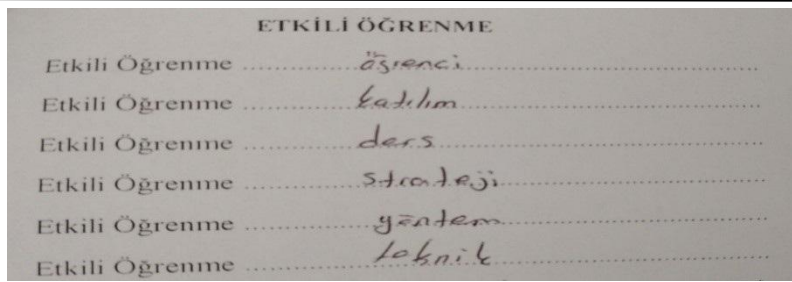 ETKİLİ ÖĞRENME
Etkili Öğrenme ..............öğrenci..............
Etkili Öğrenme ..............katılım..............
Etkili Öğrenme ..............ders..............
Etkili Öğrenme ..............strateji..............
Etkili Öğrenme ..............yöntem..............
Etkili Öğrenme ..............teknik..............